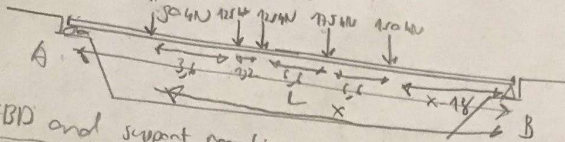 50kN 125kN 125kN 175kN 150kN
A
3,6 1,2 6,6 6,6 X-18
L
X
B
FBD and support